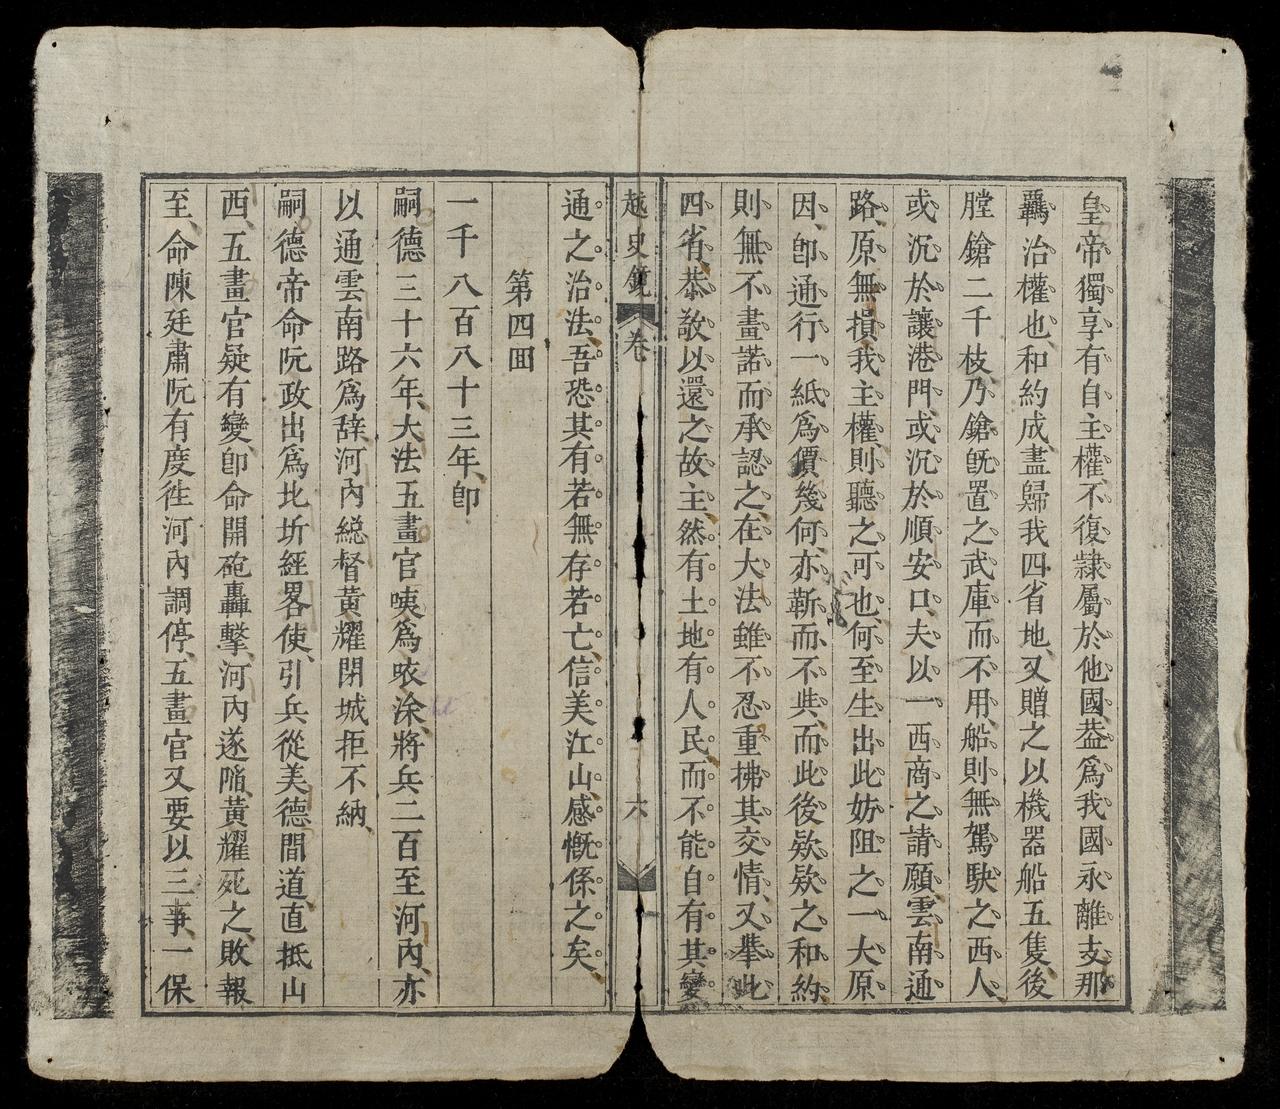 皇帝獨享有自主權不復隷屬於他國葢爲我國永離支那
羈治權也和約成盡歸我四省地又贈之以機器船五隻後
膛鎗二千枝乃鎗旣置之武庫而不用船則無駕駛之西人
或沉於讓港門或沉於順安口夫以一西商之請願雲南通
路原無損我主權則聽之可也何至生出此妨阻之一大原
因卽通行一紙爲價幾何亦靳而不與而此後欵欵之和約
則無不畫諾而承認之在大法雖不忍重拂其交情又擧此
四省恭敬以還之故主然有土地有人民而不能自有其變
越史鏡 卷 六
通之治法吾恐其有若無存若亡信美江山感慨係之矣
第四回
一千八百八十三年卽
嗣德三十六年大法五畫官咦爲㕸涂將兵二百至河內亦
以通雲南路爲辞河內総督黃耀閉城拒不納
嗣德帝命阮政出爲北圻經畧使引兵從美德間道直抵山
西五畫官疑有變卽命開砲轟擊河內遂陷黃耀死之敗報
至命陳廷肅阮有度徃河內調停五畫官又要以三事一保